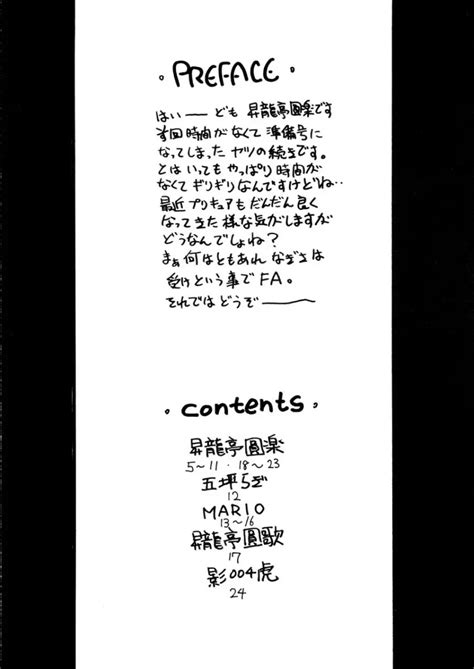 ・PREFACE・
はいーー ども 昇龍亭圓楽です
前回時間がなくて準備号に
なってしまった ヤツの続きです。
とはいっても やっぱり時間が
なくてギリギリなんですけどね‥
最近プリキュアも だんだん良く
なってきた 様な気がしますが
どうなんでしょね?
まぁ何はともあれ なぎさは
受けという事でFA。
それではどうぞーー
・contents・
昇龍亭圓楽
5〜11・18〜23
五坪らぎ
12
MARIO
13〜16
昇龍亭圓歌
17
影004虎
24